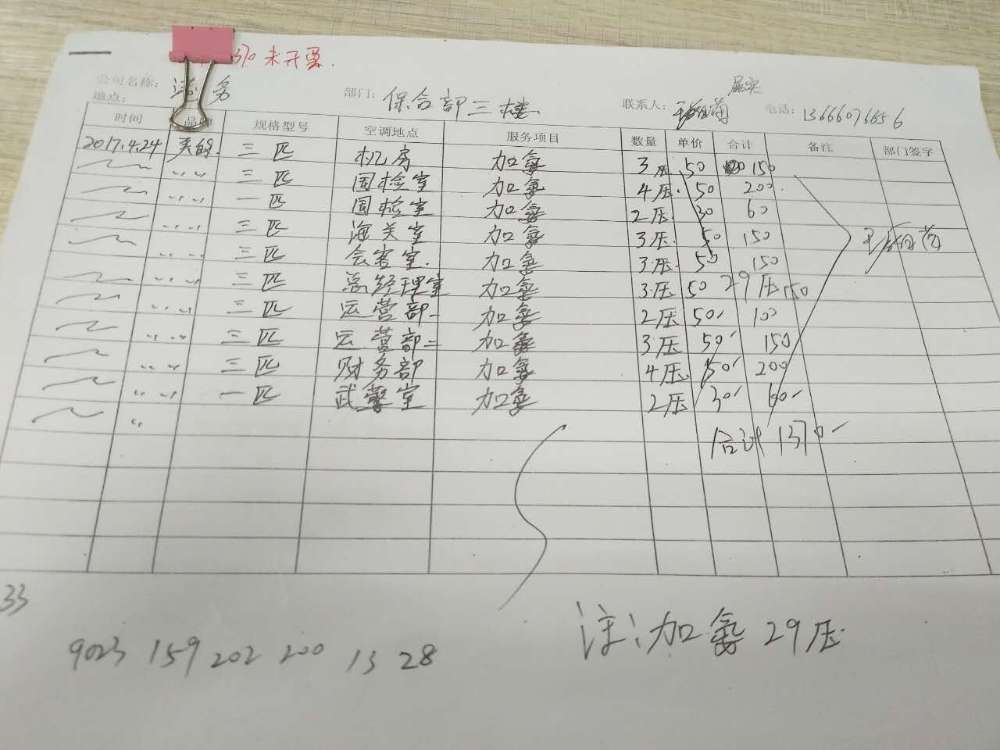 370 未开票.
公司名称: 务 部门: 保合部三楼 联系人: 电话: 13666076656
地点: 属实
时间 品牌 规格型号 空调地点 服务项目 数量 单价 合计 备注 部门签字
2017.4.24 美的 三匹 机房 加氟 3压 50 150
〃 〃 三匹 国检室 加氟 4压. 50 200
〃 〃 一匹 国检室 加氟 2压 30 60
〃 〃 三匹 海关室 加氟 3压. 50 150
〃 〃 三匹 会客室. 加氟 3压. 50 150
〃 〃 三匹 总经理室 加氟 3压 50 29压 150
〃 〃 三匹 运营部一 加氟 2压 50 100
〃 〃 三匹 运营部二 加氟 3压 50 150
〃 〃 三匹 财务部 加氟 4压. 50 200
〃 〃 一匹 室 加氟 2压 30 60
〃
合计 1370
33
注:加氟 29压.
9023 159 202 200 13 28